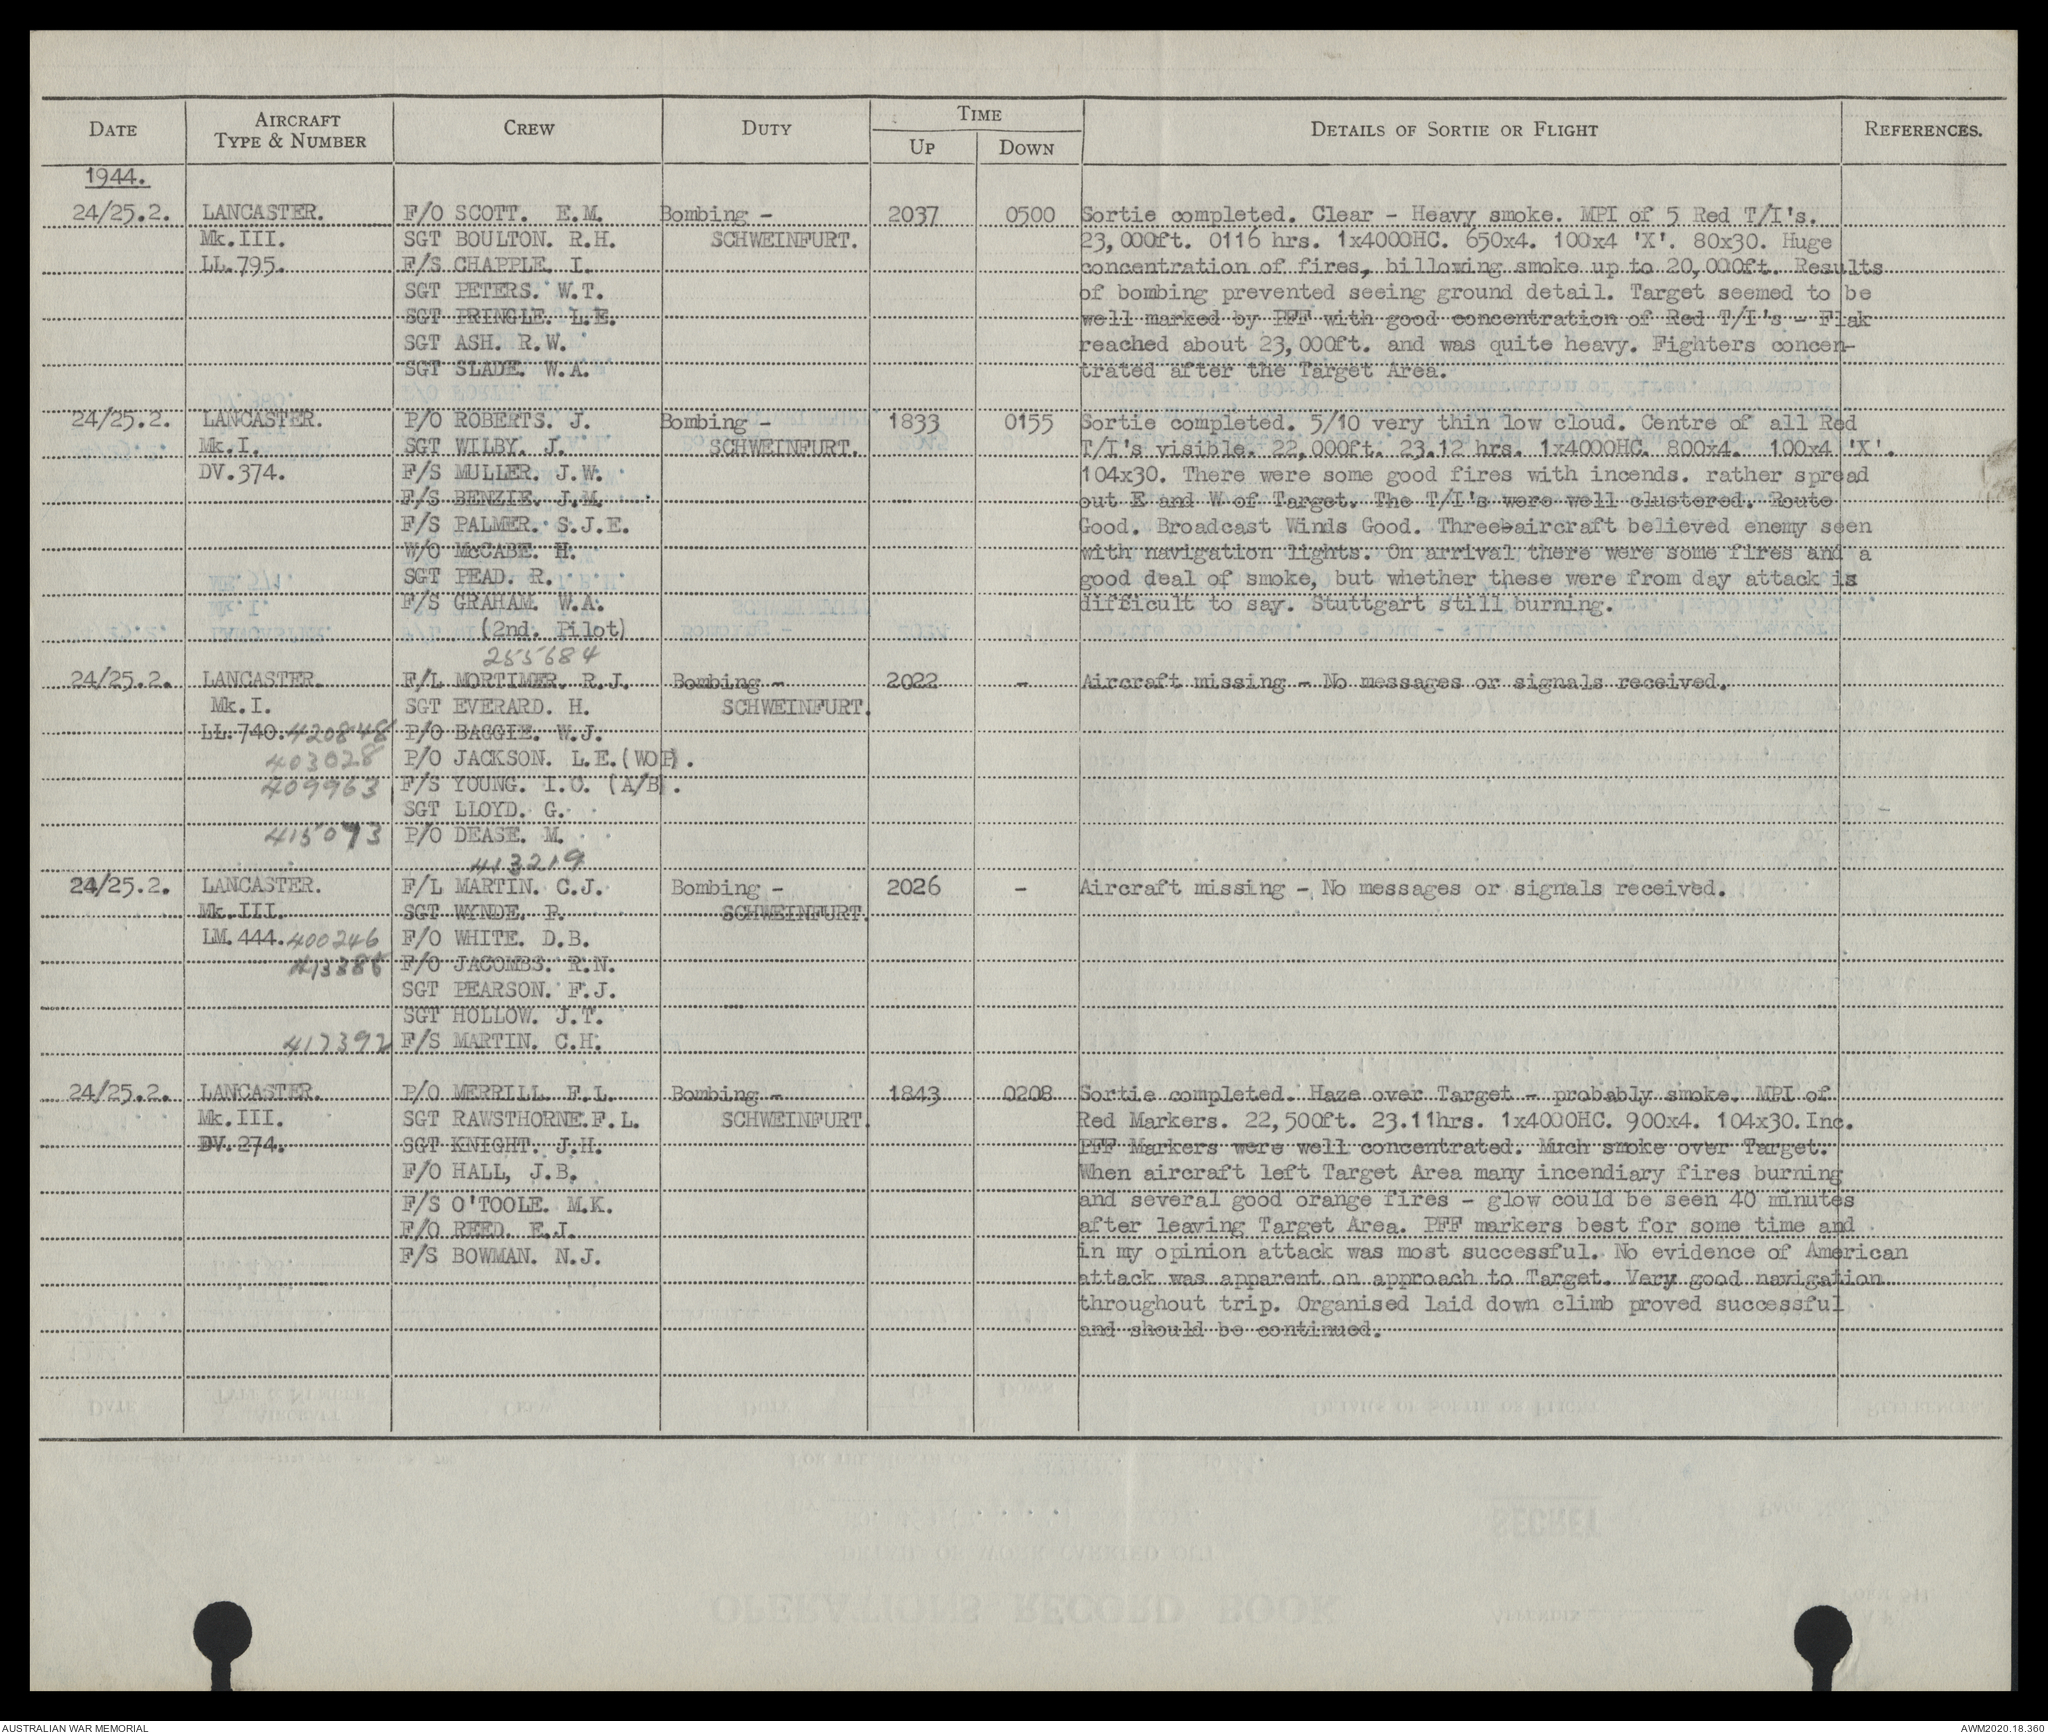 DATE AIRCRAFT TYPE & NUMBER CREW DUTY TIME UP DOWN DETAILS OF SORTIE OR FLIGHT REFERENCES.
1944.
24/25.2. LANCASTER. F/O SCOTT. E.M. Bombing - 2037 0500 Sortie completed. Clear - Heavy smoke. MPI of 5 Red T/I's.
Mk.III. SGT BOULTON. R.H. SCHWEINFURT. 23,000ft. 0116 hrs. 1x4000HC. 650x4. 100x4 'X'. 80x30. Huge
LL.795. F/S CHAPPLE. I. concentration of fires, billowing smoke up to 20,000ft. Results
SGT PETERS. W.T. of bombing prevented seeing ground detail. Target seemed to be
SGT PRINGLE. L.E. well marked by PFF with good concentration of Red T/I's - Flak
SGT ASH. R.W. reached about 23,000ft. and was quite heavy. Fighters concen-
SGT SLADE. W.A. trated after the Target Area.
24/25.2. LANCASTER. P/O ROBERTS. J. Bombing - 1833 0155 Sortie completed. 5/10 very thin low cloud. Centre of all Red
Mk.I. SGT WILBY. J. SCHWEINFURT. T/I's visible. 22,000ft. 23.12 hrs. 1x4000HC. 800x4. 100x4 'X'.
DV.374. F/S MULLER. J.W. 104x30. There were some good fires with incends. rather spread
F/S BENZIE. J.M. out E and W of Target. The T/I's were well clustered. Route
F/S PALMER. S.J.E. Good. Broadcast Winds Good. Three aircraft believed enemy seen
W/O McCABE. H. with navigation lights. On arrival there were some fires and a
SGT PEAD. R. good deal of smoke, but whether these were from day attack is
F/S GRAHAM. W.A. difficult to say. Stuttgart still burning.
(2nd. Pilot)
255684
24/25.2. LANCASTER. F/L MORTIMER. R.J. Bombing - 2022 - Aircraft missing - No messages or signals received.
Mk.I. SGT EVERARD. H. SCHWEINFURT.
LL.740. 420848 P/O BAGGIE. W.J.
403028 P/O JACKSON. L.E.(WOP).
409963 F/S YOUNG. I.C. (A/B).
SGT LLOYD. G.
415073 P/O DEASE. M.
413219
24/25.2. LANCASTER. F/L MARTIN. C.J. Bombing - 2026 - Aircraft missing - No messages or signals received.
Mk.III. SGT WYNDE. P. SCHWEINFURT.
LM.444. 400246 F/O WHITE. D.B.
413385 F/O JACOMBS. R.N.
SGT PEARSON. F.J.
SGT HOLLOW. J.T.
417392 F/S MARTIN. C.H.
24/25.2. LANCASTER. P/O MERRILL. F.L. Bombing - 1843 0208 Sortie completed. Haze over Target - probably smoke. MPI of
Mk.III. SGT RAWSTHORNE.F.L. SCHWEINFURT. Red Markers. 22,500ft. 23.11hrs. 1x4000HC. 900x4. 104x30.Inc.
DV.274. SGT KNIGHT. J.H. PFF Markers were well concentrated. Much smoke over Target.
F/O HALL, J.B. When aircraft left Target Area many incendiary fires burning
F/S O'TOOLE. M.K. and several good orange fires - glow could be seen 40 minutes
F/O REED. E.J. after leaving Target Area. PFF markers best for some time and
F/S BOWMAN. N.J. in my opinion attack was most successful. No evidence of American
attack was apparent on approach to Target. Very good navigation
throughout trip. Organised laid down climb proved successful
and should be continued.
AUSTRALIAN WAR MEMORIAL AWM2020.18.360